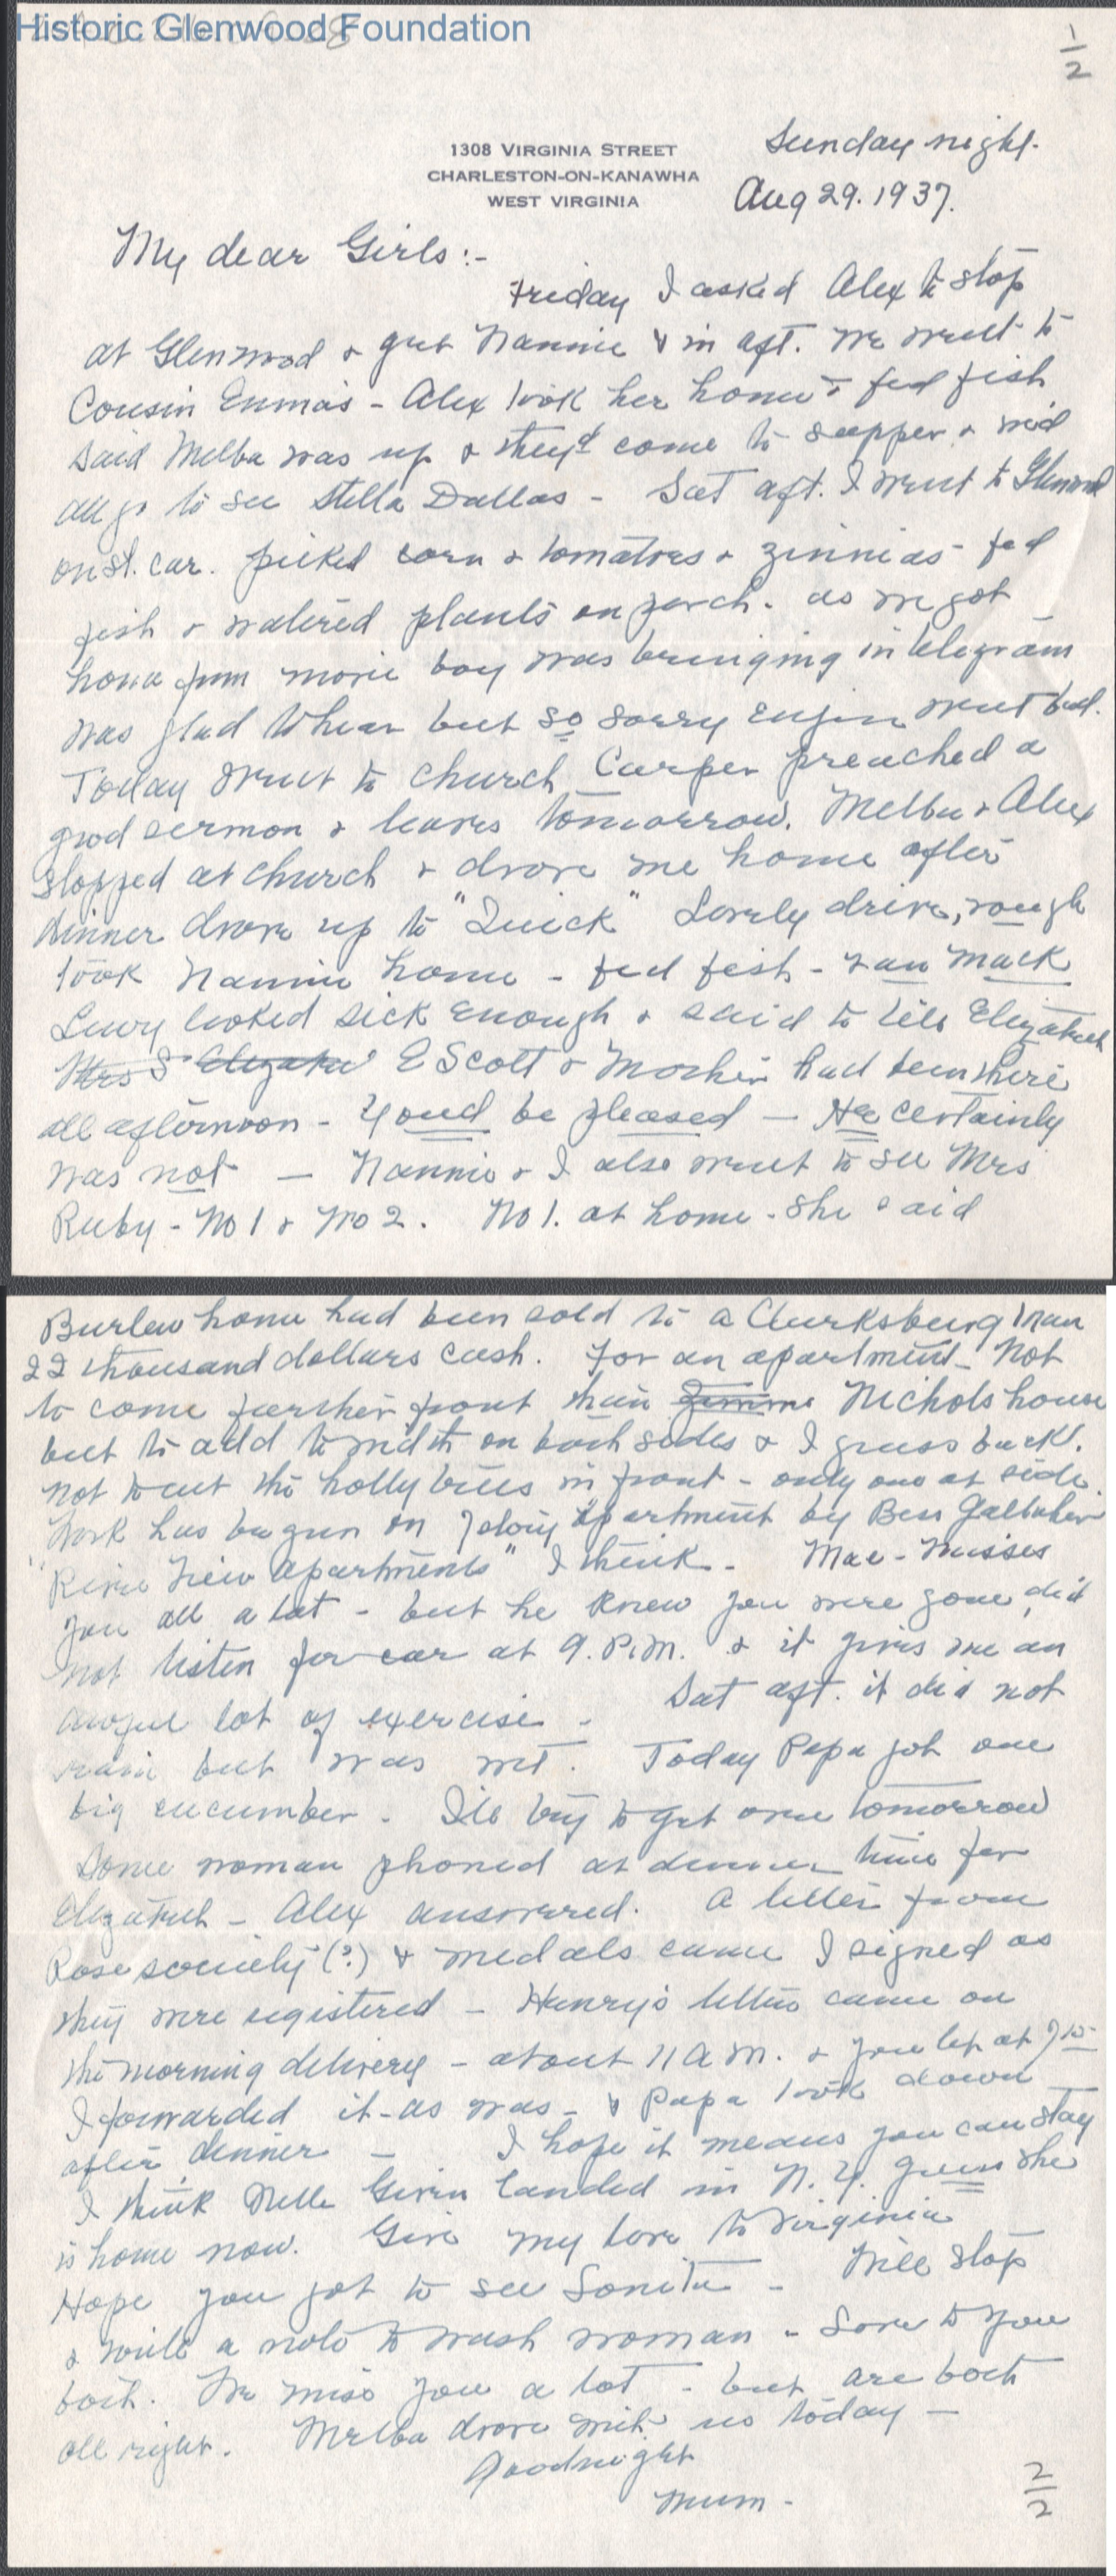 Historic Glenwood Foundation
1/2
1308 VIRGINIA STREET
CHARLESTON-ON-KANAWHA
WEST VIRGINIA
Sunday night.
Aug 29. 1937.
My dear Girls:-
Friday I asked Alex to stop
at Glenwood & get Nannie & in aft. we went to
Cousin Emma's - Alex took her home & fed fish
said Melba was up & they'd come to supper & we'd
all go to see Stella Dallas - Sat aft. I went to Glenwood
on St. car. picked corn & tomatoes & zinnias - fed
fish & watered plants on porch. as we got
home from movie boy was bringing in telegram
was glad to hear but so sorry engin went bad.
Today went to church Carper preached a
good sermon & leaves tomorrow. Melba & Alex
stopped at church & drove me home after
dinner drove up to "Quick" Lovely drive, rough
took Nannie home - fed fish - saw Mack
Lewy looked sick enough & said to tell Elizabeth
Mrs S Elizabe E Scott & Mother had been there
all afternoon - You'd be pleased - He certainly
was not - Nannie & I also went to see Mrs
Ruby - No 1 & No 2. No 1. at home - She said
Burlew home had been sold to a Clarksburg man
22 thousand dollars cash. For an apartment - Not
to come further front than Nichols house
but to add to width on both sides & I guess back.
not to cut the holly trees in front - only one at side.
Work has begun on 7 story apartment by Bess Gallaher
"River View Apartments" I think - Mac - Misses
you all a lot - but he knew you were gone, did
not listen for car at 9. P.M. & it gives me an
awful lot of exercise - Sat aft. it did not
rain but was wet. Today Papa got one
big cucumber. I'll try to get one tomorrow
Some woman phoned at dinner time for
Elizabeth - Alex answered. A letter from
Rose society (?) & medals came I signed as
they were registered - Henry's letter came on
the morning delivery - about 11 A.M. & you left at 7 15
I forwarded it - as was - & Papa took down
after dinner - I hope it means you can stay
I think Nelle Given landed in N.Y. guess she
is home now. Give my love to Virginia
Hope you got to see - Will stop
& write a note to wash woman - Love to you
both. We miss you a lot - but are both
all right. Melba drove with us today -
Goodnight
Mum -
2/2